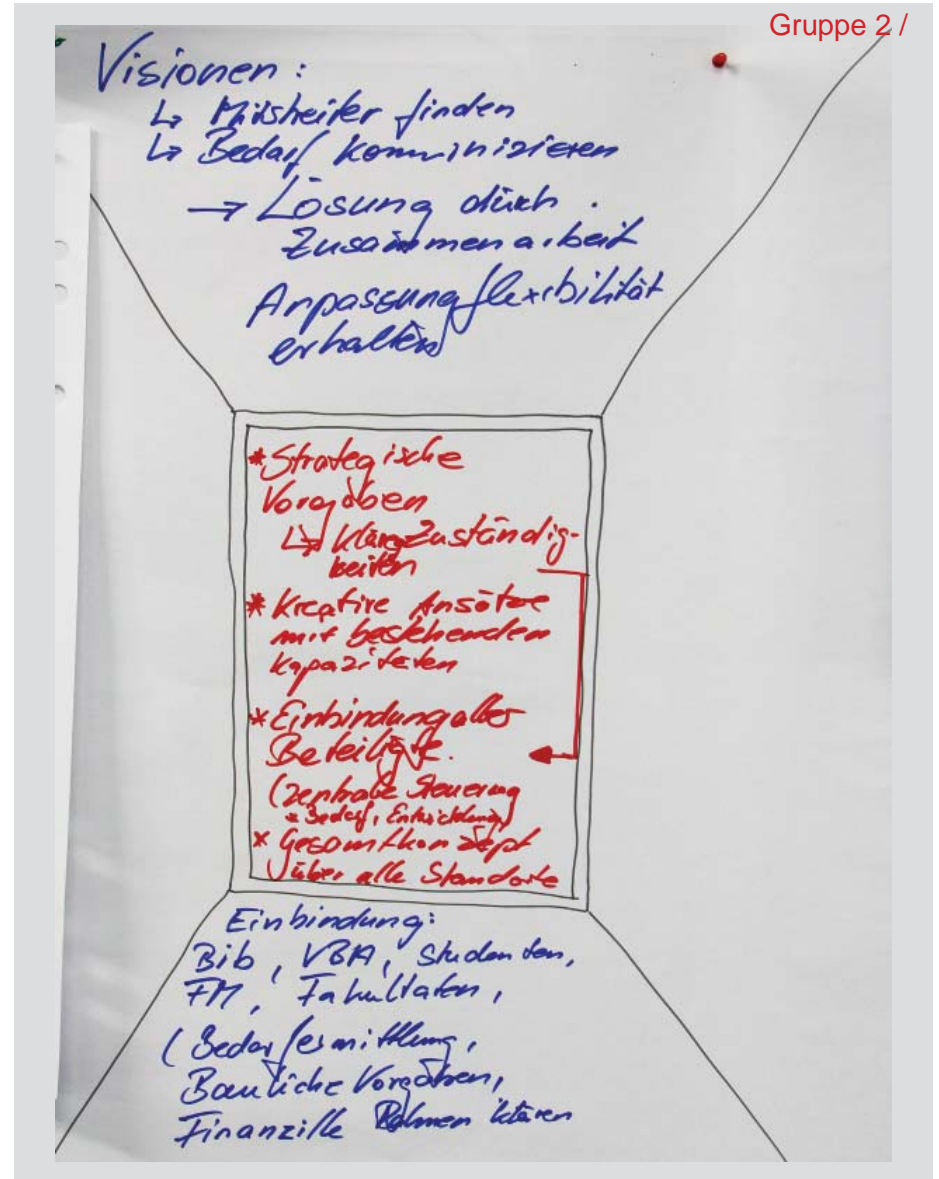 Gruppe 2 /
Visionen :
↳ Mitstreiter finden
↳ Bedarf kommunizieren
→ Lösung durch
Zusammenarbeit
Anpassungflexibilität
erhalten
* Strategische
Vorgaben
↳ Klare Zuständig-
keiten
* Kreative Ansätze
mit bestehenden
Kapazitäten
* Einbindung aller
Beteiligte.
(zentrale Steuerung
* Bedarf, Entwicklung)
* Gesamtkonzept
über alle Standorte
Einbindung:
Bib, VBA, Studenten,
FM, Fakultäten,
(Bedarfsermittlung,
Bauliche Vorgaben,
Finanzille Rahmen klären